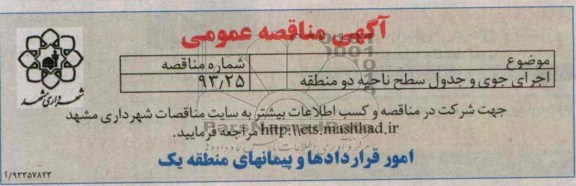 آگهی مناقصه عمومی
موضوع شماره مناقصه
اجرای جوی و جدول سطح ناحیه دو منطقه ۹۳/۲۵
شهرداری مشهد
جهت شرکت در مناقصه و کسب اطلاعات بیشتر به سایت مناقصات شهرداری مشهد
http:\\ets.mashhad.ir مراجعه فرمایید.
امور قراردادها و پیمانهای منطقه یک
۱/۹۳۳۵۷۸۲۳